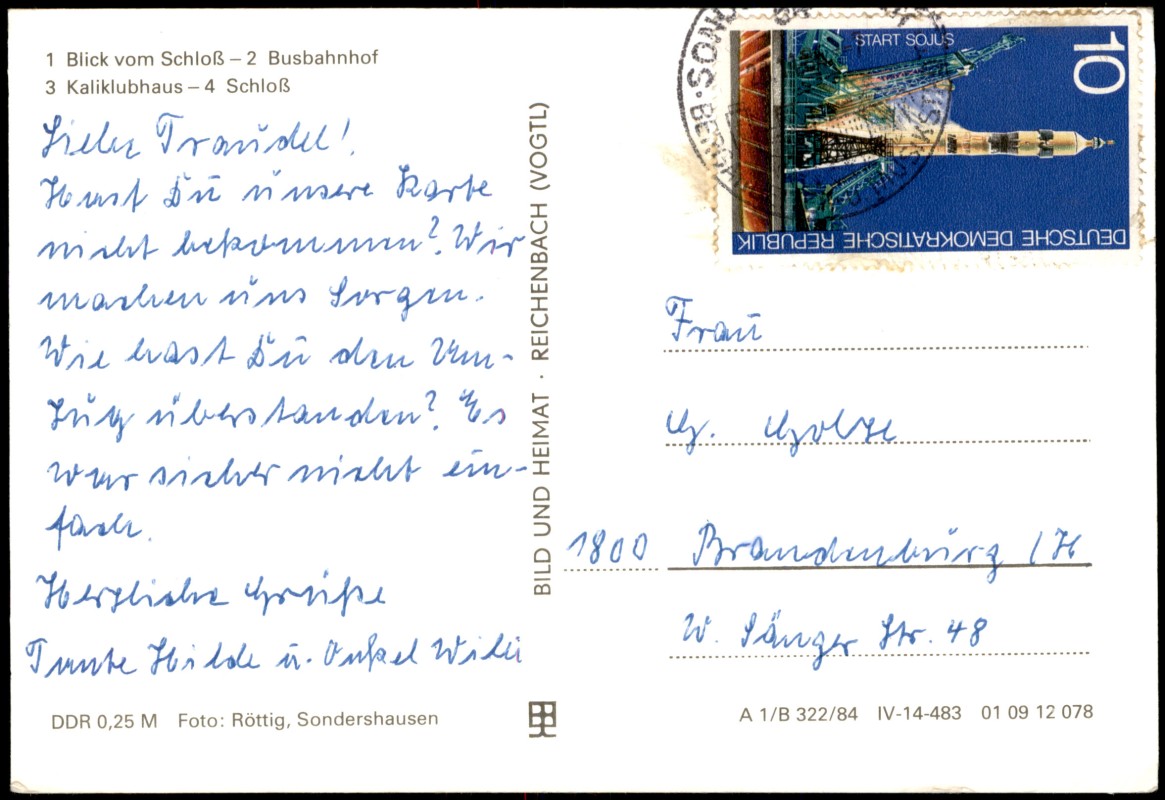 1 Blick vom Schloß – 2 Busbahnhof
3 Kaliklubhaus – 4 Schloß
Liebe Traudel!
Hast Du unsere Karte
nicht bekommen? Wir
machen uns Sorgen.
Wie hast Du den Um-
zug überstanden? Es
war sicher nicht ein-
fach.
Herzliche Grüße
Tante Hilde u. Onkel Willi
DDR 0,25 M Foto: Röttig, Sondershausen
BILD UND HEIMAT · REICHENBACH (VOGTL)
START SOJUS
10
DEUTSCHE DEMOKRATISCHE REPUBLIK
Frau
G. Golze
1800 Brandenburg / H
W. Sänger Str. 48
A 1/B 322/84 IV-14-483 01 09 12 078